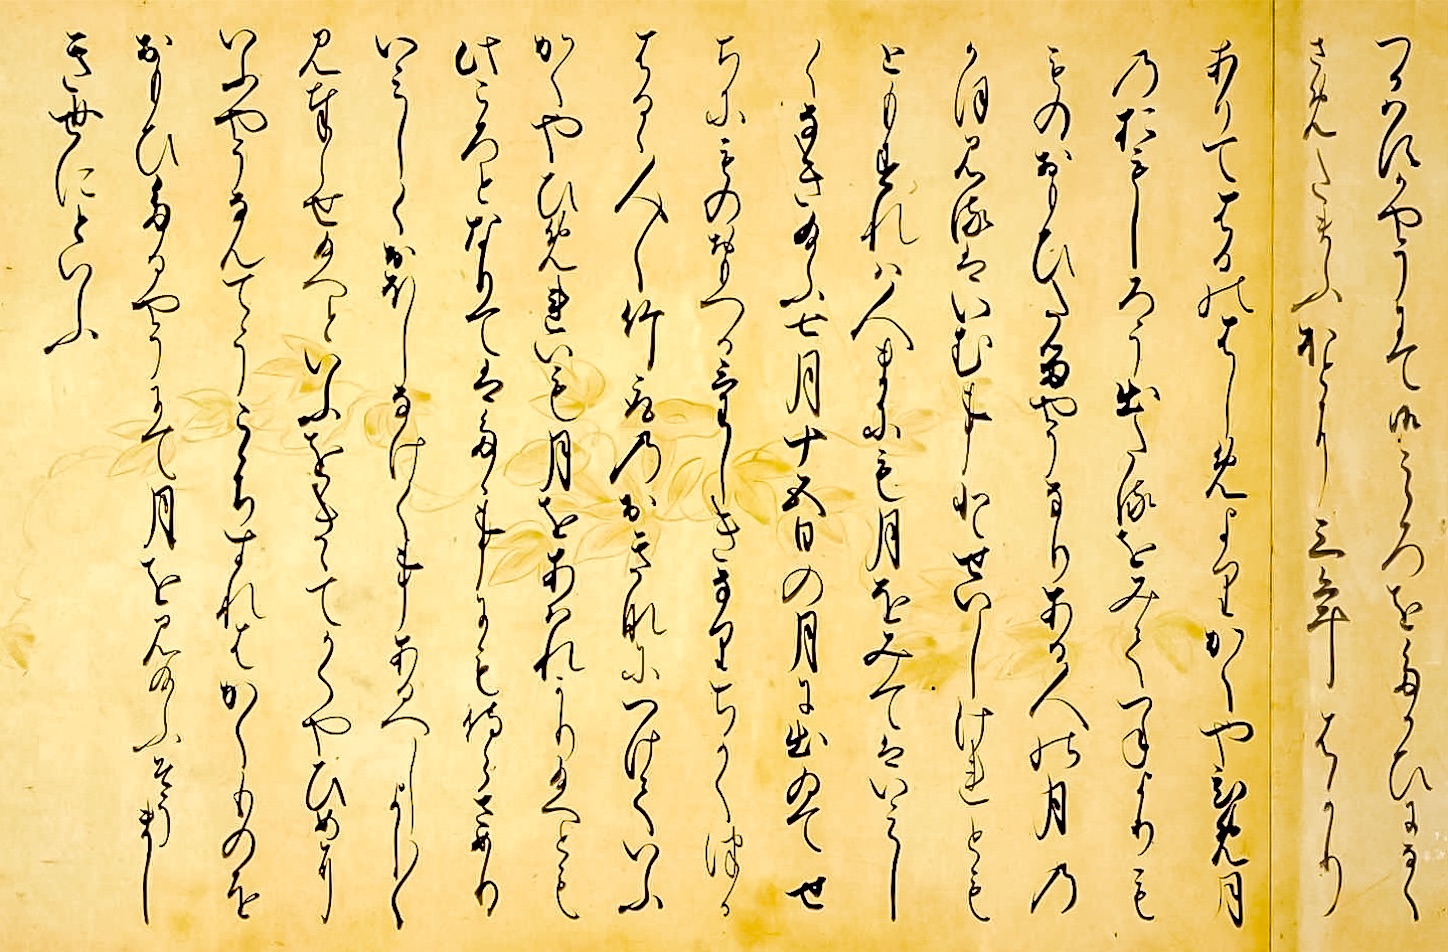 つかはすかやうにて御こゝろをたかひになく
さめたまふほとに三年はかり
ありてはるのはしめよりかくやひめ月
のおもしろう出たるをみてつねよりも
ものおもひたるやうなりある人の月の
かほ見るはいむ事とせいしけれとも
ともすれは人まにも月をみてはいみし
くなき給ふ七月十五日の月に出ゐてせ
ちにものおもへるけしきなりちかくつか
はるゝ人〱竹取のおきなにつけていふ
かくやひめれいも月をあはれかり給へとも
此ころとなりてはたゝ事にも侍らさめり
いみしくおほしなけく事あるへしよく〱
見奉らせ給へといふをきゝてかくやひめに
いふやうなんてうこゝちすれはかくものを
おもひたるやうにて月を見給ふそうまし
き世にといふ